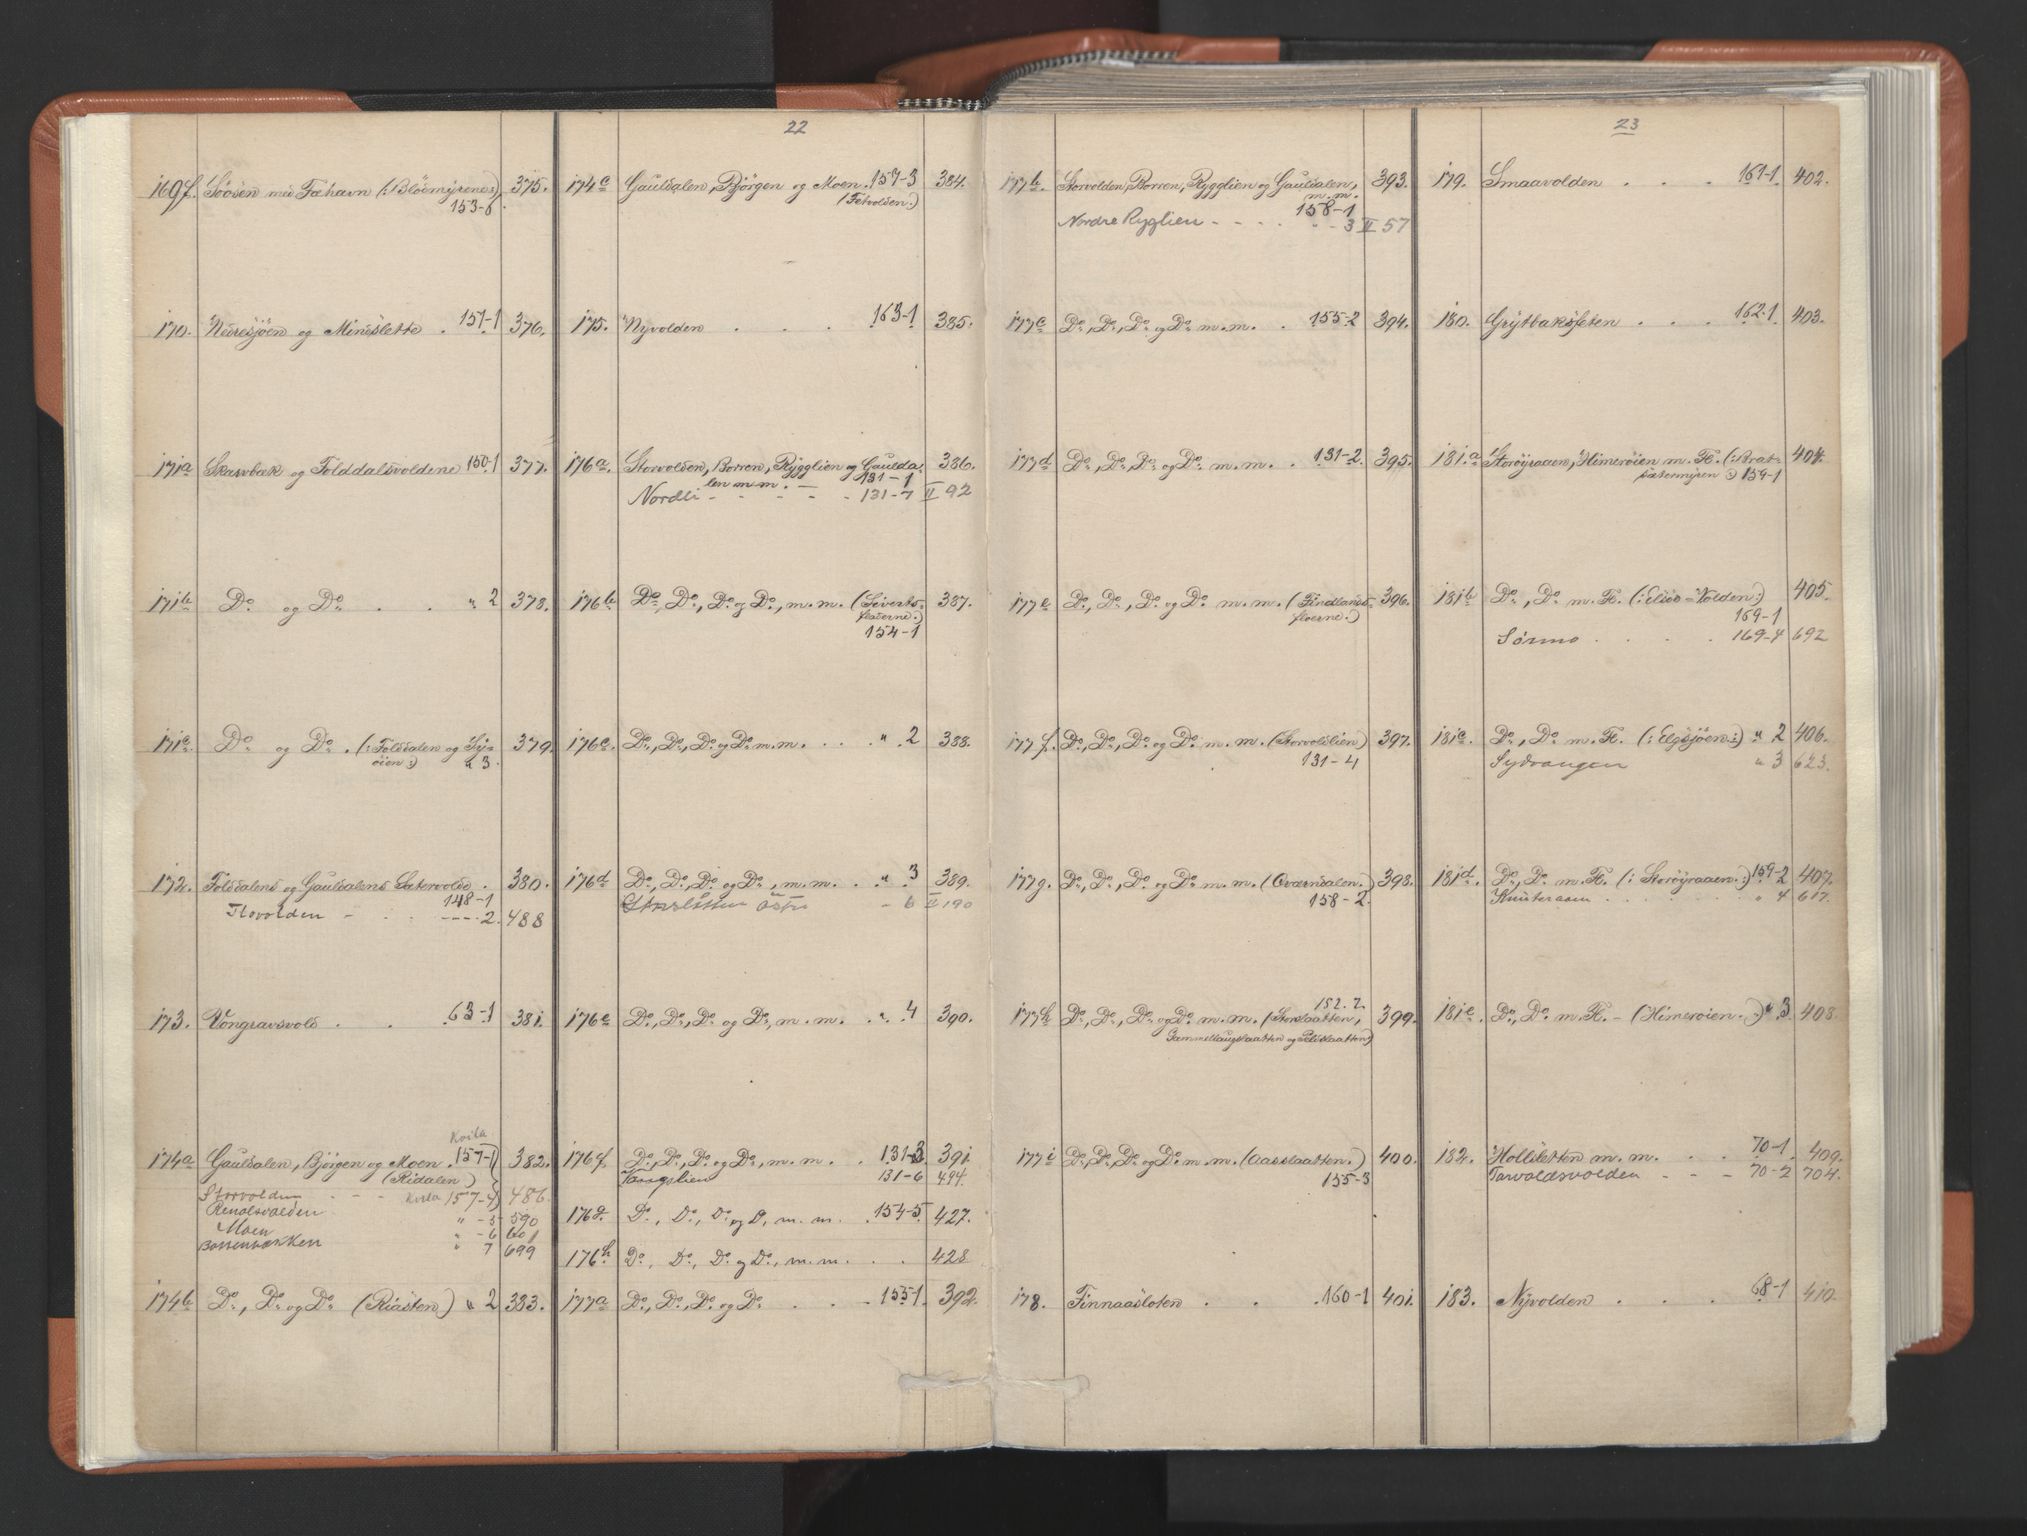 22
169f. Söösen med Fæhavn (: Blöemyrene :) 375.
153-6
170. Nedresjöen og Minislette . 151-1 376.
171a Skarvbak og Folddalsvoldene 150-1 377.
171b Do og Do . . " 2 378.
171c. Do og Do . (: Foldalen og Sy- 379.
öien :) " 3.
172. Foldalens og Gauldalens Sætervolde . 380.
148-1
Flovolden - . . ---- 2. 488
173. Vongravsvold . . . 63-1 381.
Kvila
174a Gauldalen, Björgen og Moen . 157-1 382.
(Ridalen)
Storvolden . - - Kvila 157-4 486.
Renolsvolden " -5 590
Moen " -6 601
Borrenbakken " 7 699
174b Do, Do og Do (Riasten) " 2 383.
174c Gauldalen, Björgen og Moen . 157-3 384.
(Fetvolden :)
175. Nyvolden . . . 163-1 385.
176a. Storvolden, Borren, Rygglien og Gaulda- 386.
len m.m. - 131-1
Nordli - - - - - 131-7 II 92
176b Do, Do, Do og Do, m.m. (Siverts- 387.
flaerne :)
154-1
176c. Do, Do, Do og Do m.m. . . . " 2 388.
176d Do, Do, Do og Do, m.m. . . " 3 389.
østre " 6 II 190
176e Do, Do, Do og Do, m.m. . " 4 390.
176f Do, Do, Do og Do, m.m. . . 131-3 391
131-6 494.
176g. Do, Do, Do og Do, m.m. . 154-5 427.
176h Do, Do, Do og Do, m.m. . . 428
177a Do, Do, Do og Do . . . 155-1 392.
23
177b. Storvolden, Borren, Rygglien og Gauldalen, 393.
m.m.
158-1
Nordre Ryglien - - - . " - 3 II 57
177c Do, Do, Do og Do m.m. . 155-2 394.
177d Do, Do, Do og Do m.m. . 131-2. 395.
177e Do, Do, Do og Do m.m. (Findlands- 396.
floerne :)
177f. Do, Do, Do og Do m.m. (Storvoldlien) 397.
131-4
177g. Do, Do, Do og Do m.m. (Kværndalen.) 398.
158-2.
152.2.
177h Do, Do, Do og Do m.m. (Storslaatten, 399.
Gammellaugslaatten og Pelslaatten)
177i Do, Do, Do og Do m.m. (Aasslaatten.) 400.
155-3
178. Finnaasloten . . . 160-1 401.
179. Smaavolden . . . 161-1 402.
180. Grytbaksseten . . . 162-1 403.
181.a Storöyraaen, Himeröien m. Fl. (: Brat- 404.
sætermyren :) 159-1
181b Do, Do m. Fl. (: Elsöe-Volden :) 405.
169-1
Sörmo . . . . 169-4 692
181c. Do, Do m. Fl. (: Elgsjöen :) " 2 406.
Sydvangen " 3 623.
181d. Do, Do m. Fl. (: Storöyraaen :) 159-2 407.
Knuteraaen . . . . . . " 4 617.
181e. Do, Do m. Fl. - (Himeröien. :) " 3 408.
182. Holliletten m.m. . . 70-1. 409.
Torvoldsvolden - - - 70-2 704.
183. Nyvolden . . . 68-1 410.